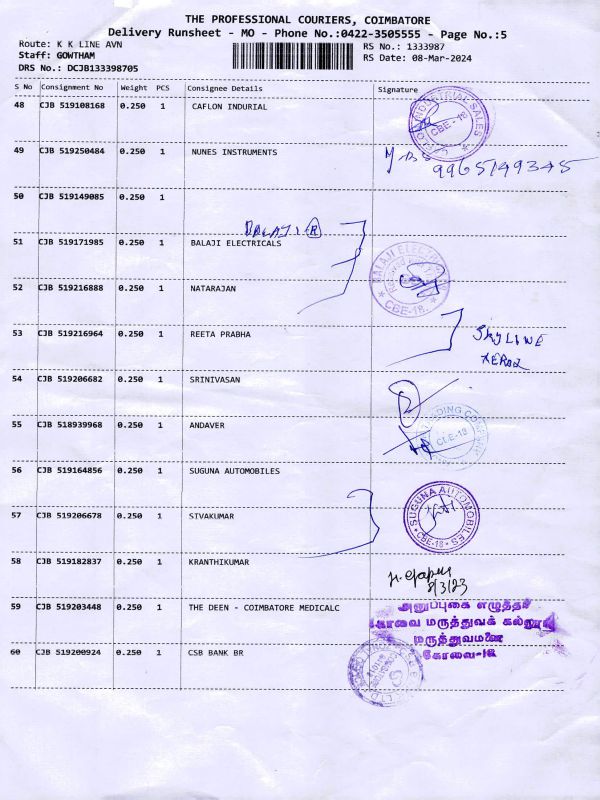 THE PROFESSIONAL COURIERS, COIMBATORE
Delivery Runsheet - MO - Phone No.:0422-3505555 - Page No.:5
Route: K K LINE AVN RS No.: 1333987
Staff: GOWTHAM RS Date: 08-Mar-2024
DRS No.: DCJB133398705
S No Consignment No Weight PCS Consignee Details Signature
48 CJB 519108168 0.250 1 CAFLON INDURIAL
INDUSTRIAL SALES
CBE-18
49 CJB 519250484 0.250 1 NUNES INSTRUMENTS
9965149345
50 CJB 519149085 0.250 1
BALAJI R
51 CJB 519171985 0.250 1 BALAJI ELECTRICALS
BALAJI ELECTRICALS
CBE-18.
52 CJB 519216888 0.250 1 NATARAJAN
53 CJB 519216964 0.250 1 REETA PRABHA
SKYLINE
XEROX
54 CJB 519206682 0.250 1 SRINIVASAN
55 CJB 518939968 0.250 1 ANDAVER
CBE-18
56 CJB 519164856 0.250 1 SUGUNA AUTOMOBILES
SUGUNA AUTOMOBILES
CBE-18
57 CJB 519206678 0.250 1 SIVAKUMAR
58 CJB 519182837 0.250 1 KRANTHIKUMAR
8/3/23
59 CJB 519203448 0.250 1 THE DEEN - COIMBATORE MEDICALC
அனுப்புகை எழுத்தர்
கோவை மருத்துவக் கல்லூரி
மருத்துவமனை
கோவை-18
60 CJB 519200924 0.250 1 CSB BANK BR